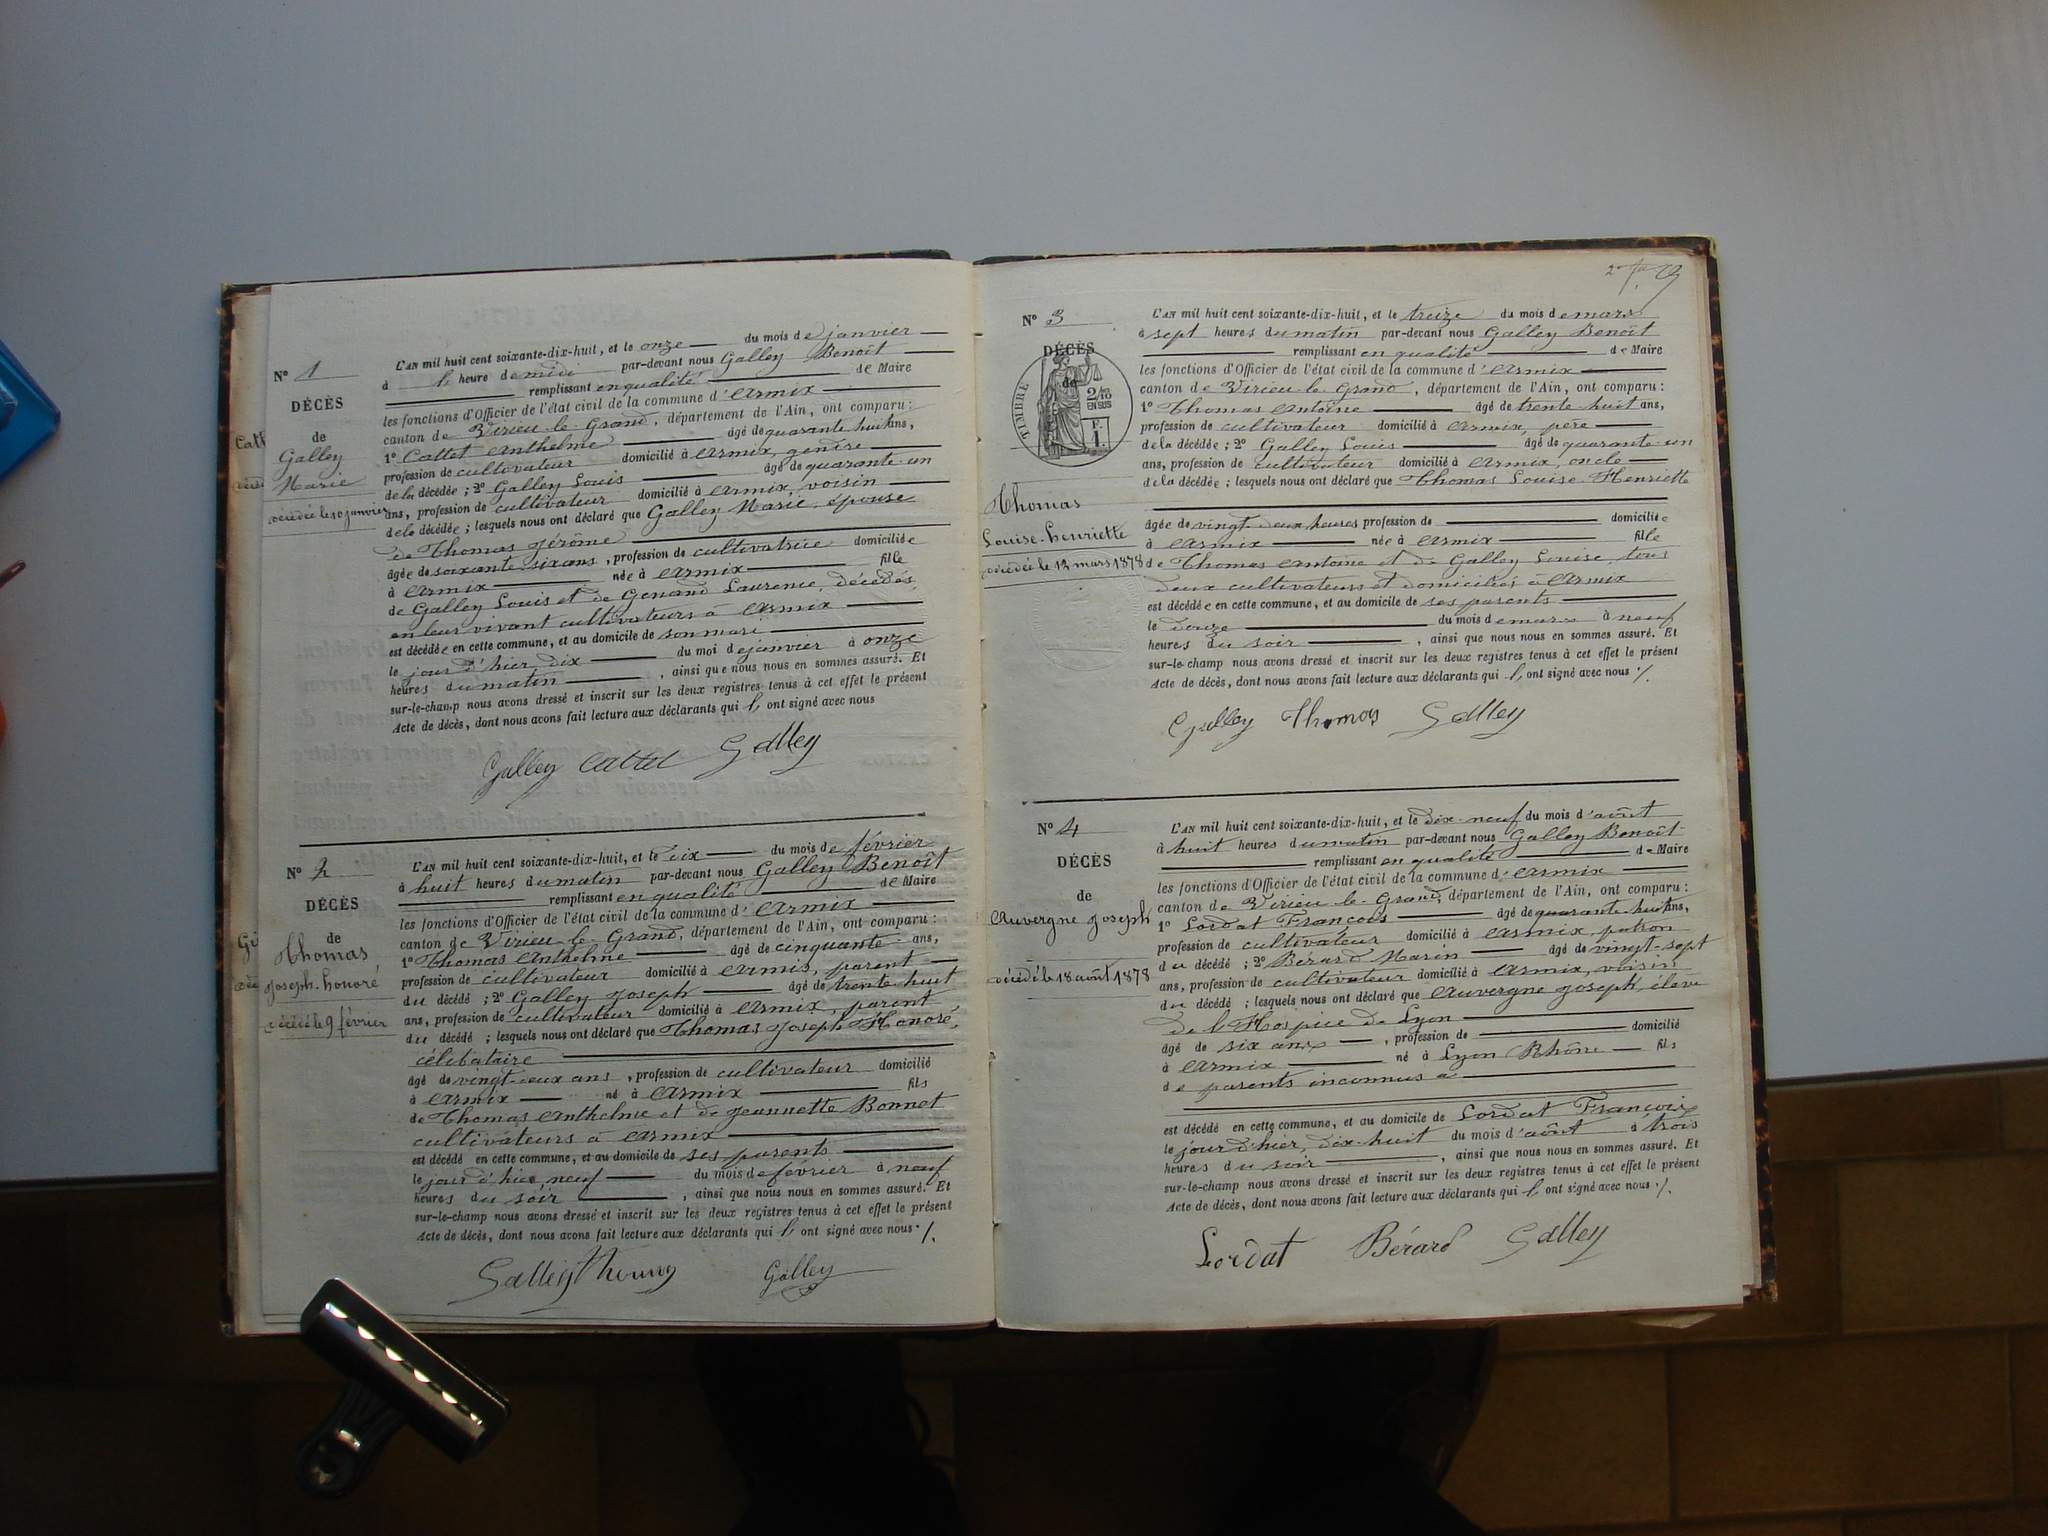 N° 1
DÉCÈS
de
Galley
Marie
décédée le 10 janvier
L'AN mil huit cent soixante-dix-huit, et le onze du mois de janvier
à heure de midi par-devant nous Galley Benoît
remplissant en qualité de Maire
les fonctions d'Officier de l'état civil de la commune d'Armix
canton de Virieu-le-Grand, département de l'Ain, ont comparu:
1° Cattet Anthelme âgé de quarante huit ans,
profession de cultivateur domicilié à Armix, gendre
de la décédée; 2° Galley Louis âgé de quarante-un
ans, profession de cultivateur domicilié à Armix, voisin
de la décédée; lesquels nous ont déclaré que Galley Marie, épouse
de Thomas Jérôme
âgée de soixante-six ans, profession de cultivatrice domiciliée
à Armix née à Armix fille
de Galley Louis et de Genand Laurence, décédés,
en leur vivant cultivateurs à Armix
est décédée en cette commune, et au domicile de son mari
le jour d'hier, dix du moi de janvier à onze
heures du matin, ainsi que nous nous en sommes assuré. Et
sur-le-champ nous avons dressé et inscrit sur les deux registres tenus à cet effet le présent
Acte de décès, dont nous avons fait lecture aux déclarants qui ont signé avec nous
Galley Cattet Galley
N° 2
DÉCÈS
de
Thomas
Joseph-honoré
décédé le 9 février
L'AN mil huit cent soixante-dix-huit, et le dix du mois de février
à huit heures du matin par-devant nous Galley Benoît
remplissant en qualité de Maire
les fonctions d'Officier de l'état civil de la commune d'Armix
canton de Virieu-le-Grand, département de l'Ain, ont comparu:
1° Thomas Anthelme âgé de cinquante ans,
profession de cultivateur domicilié à Armix, parent
du décédé; 2° Galley Joseph âgé de trente-huit
ans, profession de cultivateur domicilié à Armix, parent
du décédé; lesquels nous ont déclaré que Thomas Joseph Honoré,
célibataire
âgé de vingt-deux ans, profession de cultivateur domicilié
à Armix né à Armix fils
de Thomas Anthelme et de Jeannette Bonnet
cultivateurs à Armix
est décédé en cette commune, et au domicile de ses parents
le jour d'hier, neuf du mois de février à neuf
heures du soir, ainsi que nous nous en sommes assuré. Et
sur-le-champ nous avons dressé et inscrit sur les deux registres tenus à cet effet le présent
Acte de décès, dont nous avons fait lecture aux déclarants qui ont signé avec nous ./.
Galley Thomas Galley
N° 3
DÉCÈS
de
TIMBRE
2/10
EN SUS
F.
1.
Thomas
Louise-henriette
décédée le 12 mars 1878
L'AN mil huit cent soixante-dix-huit, et le treize du mois de mars
à sept heures du matin par-devant nous Galley Benoît
remplissant en qualité de Maire
les fonctions d'Officier de l'état civil de la commune d'Armix
canton de Virieu-le-Grand, département de l'Ain, ont comparu:
1° Thomas Antoine âgé de trente-huit ans,
profession de cultivateur domicilié à Armix, père
de la décédée; 2° Galley Louis âgé de quarante-un
ans, profession de cultivateur domicilié à Armix, oncle
de la décédée; lesquels nous ont déclaré que Thomas Louise Henriette
âgée de vingt-deux heures profession de domiciliée
à Armix née à Armix fille
de Thomas Antoine et de Galley Louise, tous
deux cultivateurs et domiciliés à Armix
est décédée en cette commune, et au domicile de ses parents
le douze du mois de mars à neuf
heures du soir, ainsi que nous nous en sommes assuré. Et
sur-le-champ nous avons dressé et inscrit sur les deux registres tenus à cet effet le présent
Acte de décès, dont nous avons fait lecture aux déclarants qui ont signé avec nous ./.
Galley Thomas Galley
N° 4
DÉCÈS
de
Auvergne Joseph
décédé le 18 août 1878
L'AN mil huit cent soixante-dix-huit, et le dix-neuf du mois d'août
à huit heures du matin par-devant nous Galley Benoît
remplissant en qualité de Maire
les fonctions d'Officier de l'état civil de la commune d'Armix
canton de Virieu-le-Grand, département de l'Ain, ont comparu:
1° Lordat François âgé de quarante-huit ans,
profession de cultivateur domicilié à Armix, patron
du décédé; 2° Bérard Marin âgé de vingt-sept
ans, profession de cultivateur domicilié à Armix, voisin
du décédé; lesquels nous ont déclaré que Auvergne Joseph, élève
de l'Hospice de Lyon
âgé de six ans, profession de domicilié
à Armix né à Lyon Rhône fils
de parents inconnus
est décédé en cette commune, et au domicile de Lordat François
le jour d'hier, dix-huit du mois d'août à trois
heures du soir, ainsi que nous nous en sommes assuré. Et
sur-le-champ nous avons dressé et inscrit sur les deux registres tenus à cet effet le présent
Acte de décès, dont nous avons fait lecture aux déclarants qui ont signé avec nous ./.
Lordat Bérard Galley